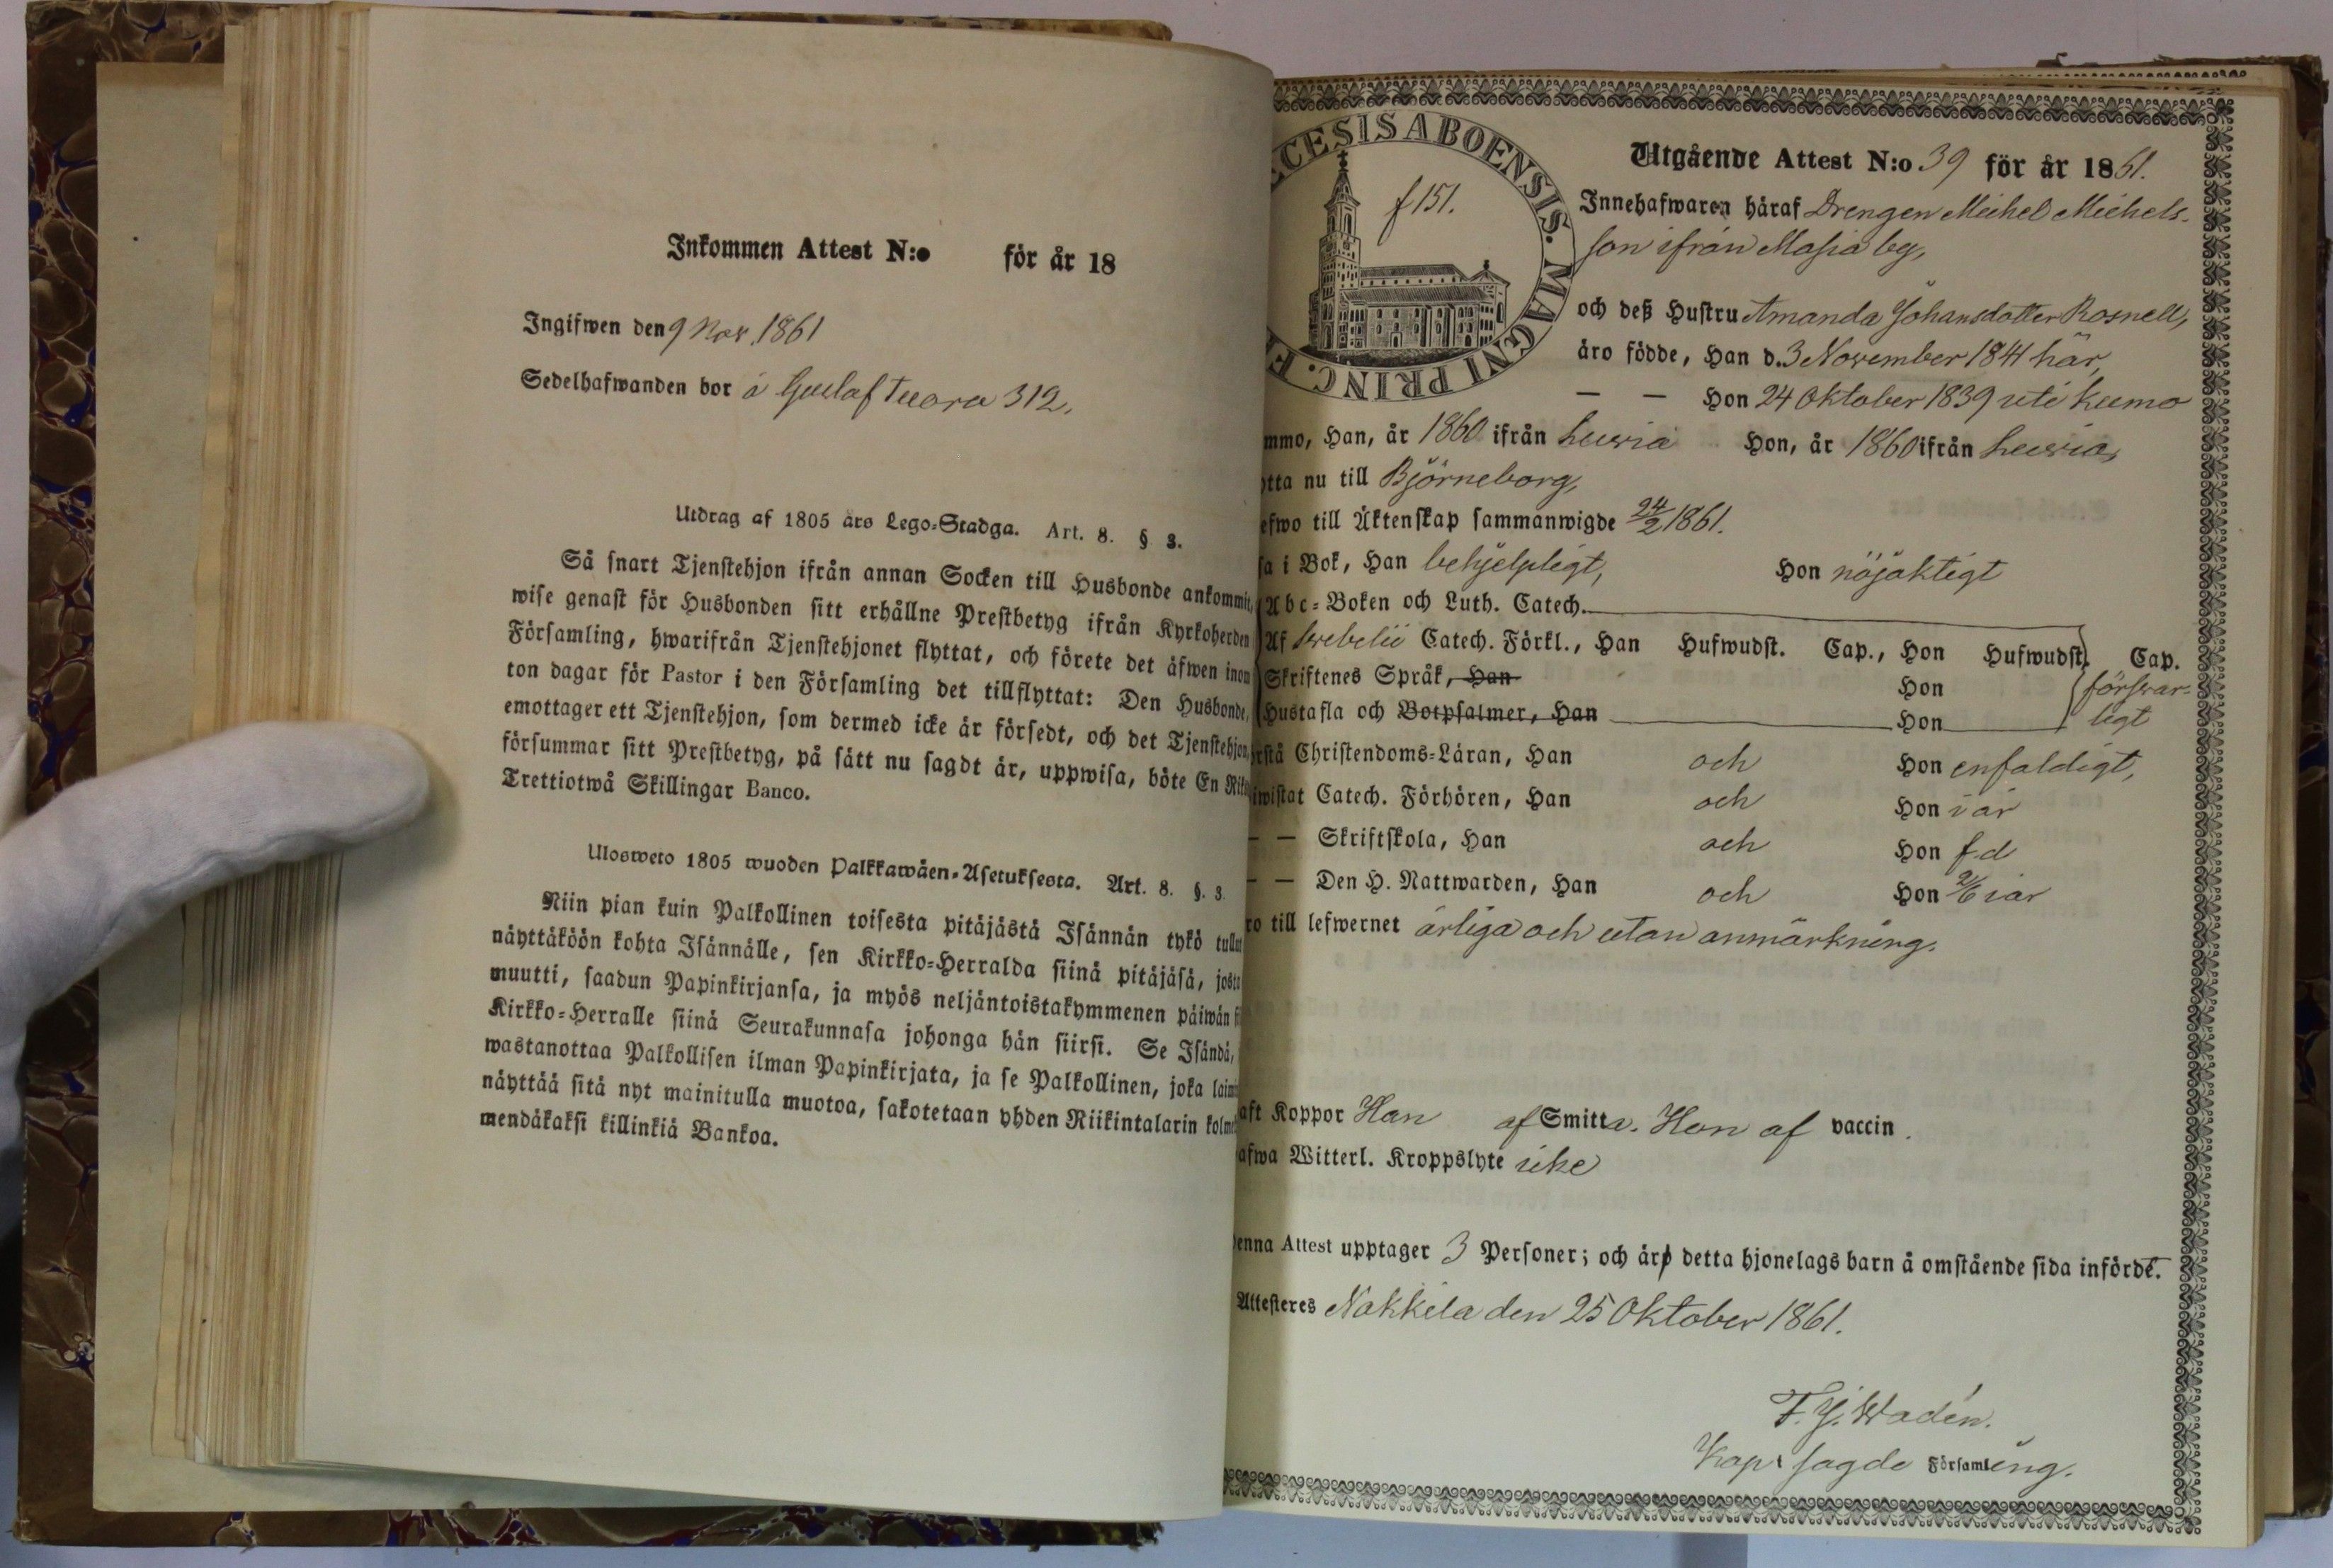 Inkommen Attest N:o för år 18
Ingifwen den 9 Nov. 1861
Sedelhafwanden bor å Gustaf Tuora 312.
Utdrag af 1805 års Lego-Stadga. Art. 8. § 3.
Så snart Tjenstehjon ifrån annan Socken till Husbonde ankommit,
wise genast för Husbonden sitt erhållne Prestbetyg ifrån Kyrkoherden
Församling, hwarifrån Tjenstehjonet flyttat, och förete det äfwen inom
ton dagar för Pastor i den Församling det tillflyttat: Den Husbonde,
emottager ett Tjenstehjon, som dermed icke är försedt, och det Tjenstehjon,
försummar sitt Prestbetyg, på sätt nu sagdt är, uppwisa, böte En Riks
Trettiotwå Skillingar Banco.
Ulosweto 1805 wuoden Palkkawäen-Asetuksesta. Art. 8. §. 3.
Niin pian kuin Palkollinen toisesta pitäjästä Isännän tykö tullut
näyttäköön kohta Isännälle, sen Kirkko-Herralda siinä pitäjäsä, josta
muutti, saadun Papinkirjansa, ja myös neljäntoistakymmenen päiwän
Kirkko-Herralle siinä Seurakunnasa johonga hän siirsi. Se Isändä,
wastanottaa Palkollisen ilman Papinkirjata, ja se Palkollinen, joka laimi
näyttää sitä nyt mainitulla muotoa, sakotetaan yhden Riikintalarin kolme
mendäkaksi killinkiä Bankoa.
CESIS ABOENSIS. MAGNI PRINC. F
f 151.
Utgående Attest N:o 39 för år 1861.
Innehafwaren häraf Drengen Michel Michels-
son ifrån Masia by,
och deß Hustru Amanda Johansdotter Rosnell,
äro födde, Han d. 3 November 1841 här,
— — Hon 24 Oktober 1839 uti Kumo
mmo, Han, år 1860 ifrån Luvia Hon, år 1860 ifrån Luvia,
ytta nu till Björneborg,
efwo till Äktenskap sammanwigde 24/2 1861.
sa i Bok, Han behjelpligt, Hon nöjaktigt
Abc-Boken och Luth. Catech.
Af Svebelii Catech. Förkl., Han Hufwudst. Cap., Hon Hufwudst. Cap.
Skriftenes Språk, Han Hon försvar-
Hustafla och Botpsalmer, Han Hon ligt
rstå Christendoms-Läran, Han och Hon enfaldigt,
iwistat Catech. Förhören, Han och Hon i år
— — Skriftskola, Han och Hon f.d
— — Den H. Nattwarden, Han och Hon 2/6 i år
ro till lefwernet ärliga och utan anmärkning.
aft Koppor Han af Smitta. Hon af vaccin.
afwa Witterl. Kroppslyte icke
enna Attest upptager 3 Personer; och äro detta hjonelags barn å omstående sida införde.
Attesteres Nakkila den 25 Oktober 1861.
F. J. Wadén.
Kap. i sagde Församling.